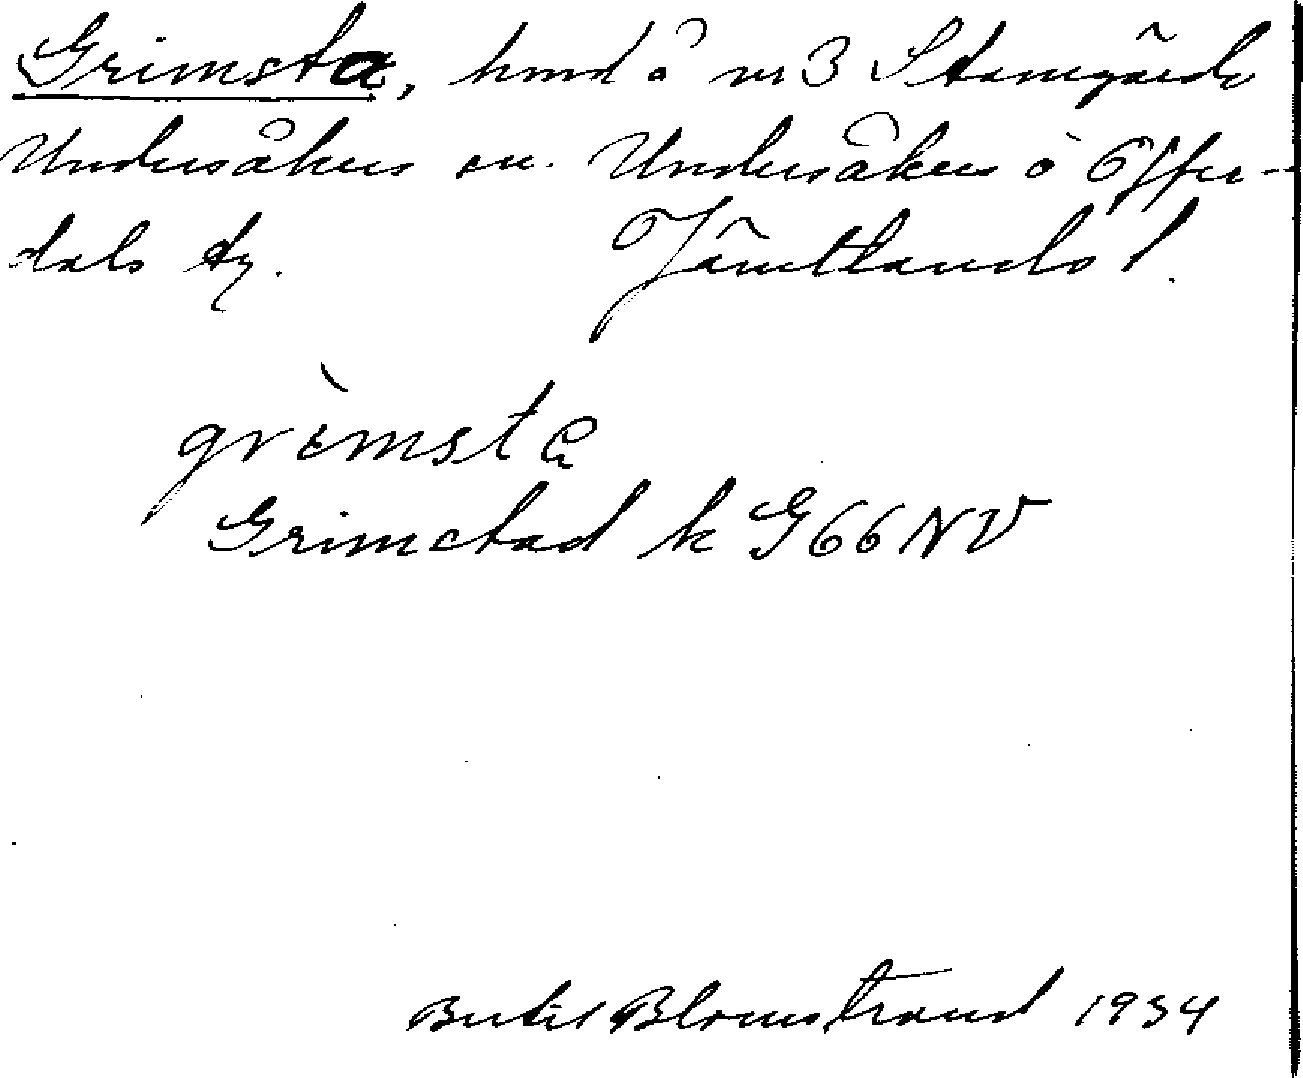 Grimsta, hmd å nr 3 Stamgärde
Undersåkers sn. Undersåkers o Offer-
dals tg. Jämtlands l.
grìmsta
Grimstad k G66NV
Bertil Blomstrand 1934